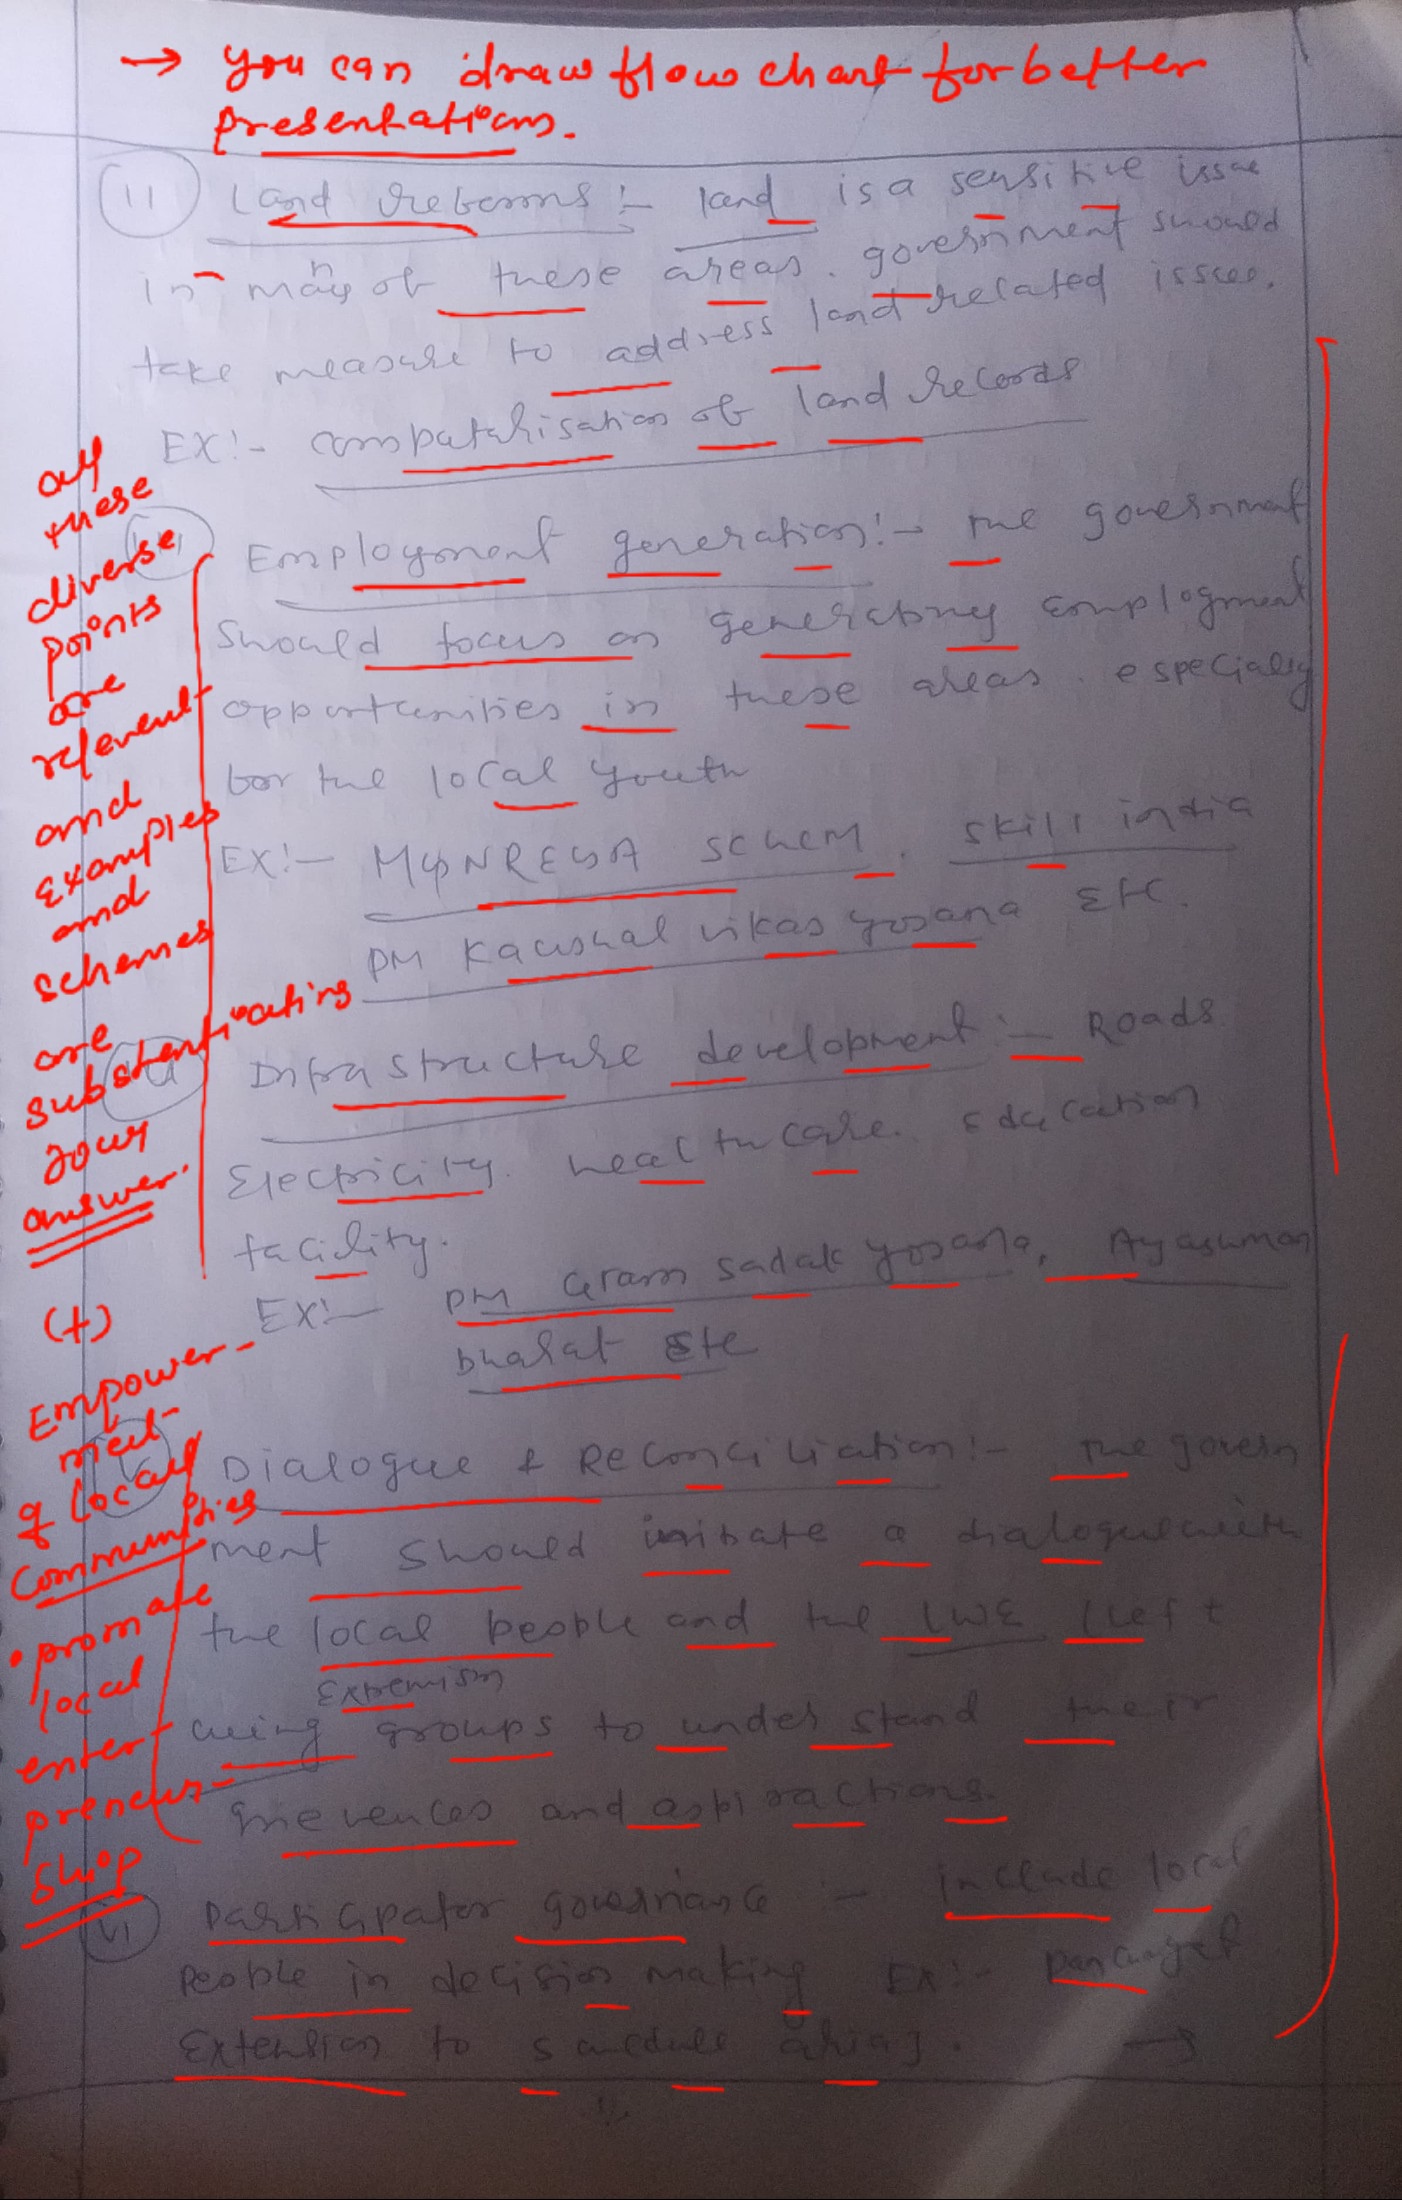 → you can draw flow chart for better
presentations.
11 Land reforms :- land is a sensitive issue
in many of these areas. government should
take measure to address land related issue.
EX:- computarisation of land records
all
these
diverse
points
are
relevent
and
examples
and
schemes
are
substentiating
your
answer.
Employment generation:- The government
should focus on generating employment
opportunities in these areas. especially
for the local youth
EX:- MGNREGA schem, skill india
PM Kaushal vikas yojana Etc.
Infrastructure development :- Roads
Electricity. healthcare. Education
facility.
EX:- PM Gram sadak yojana, Ayasuman
bharat Etc
(+)
Empower-
ment
of local
communities
• promote
local
enter
preneur-
ship
Dialogue & Reconciliation:- The govern
ment should initate a dialogue with
the local people and the LWE (Left
Extremism
wing groups to under stand their
grievences and aspiractions.
vi Participator governance :- include local
people in decision making EX:- Panchayet
Extension to schedule